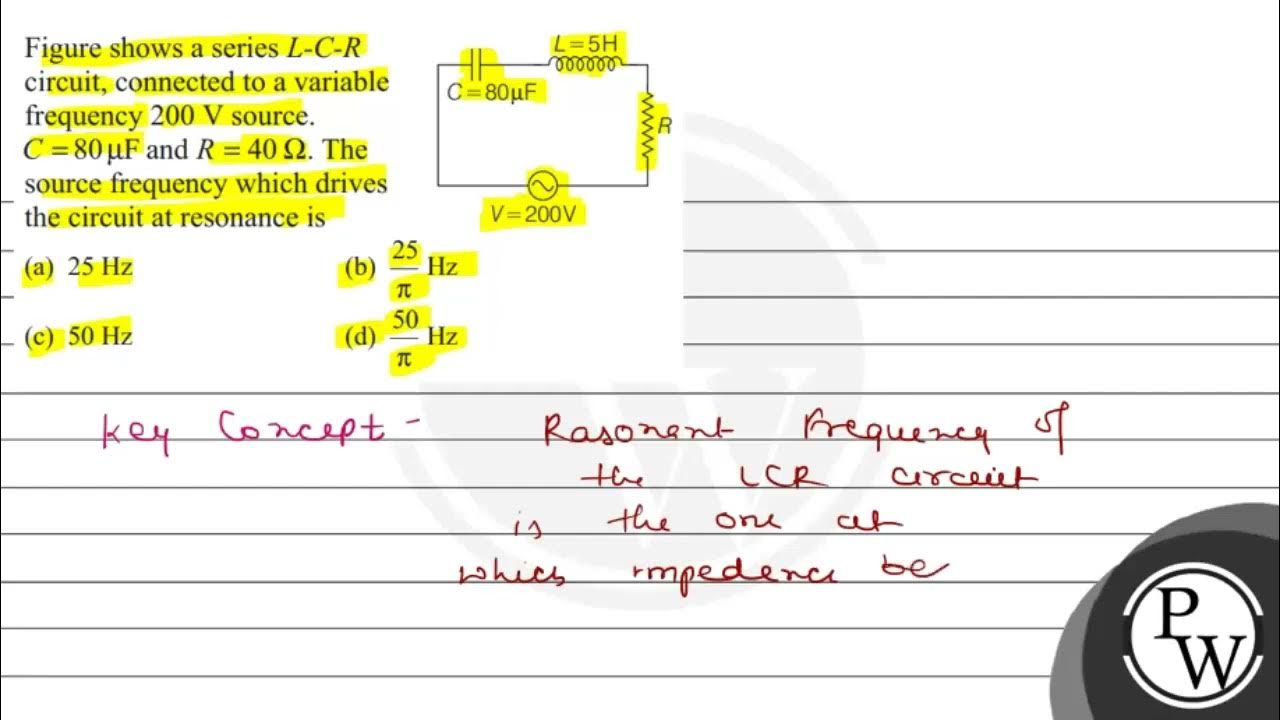 Figure shows a series L-C-R
circuit, connected to a variable
frequency 200 V source.
C = 80 μF and R = 40 Ω. The
source frequency which drives
the circuit at resonance is
L = 5H
C = 80μF
R
V = 200V
(a) 25 Hz
(b) 25/π Hz
(c) 50 Hz
(d) 50/π Hz
Key Concept -
Rasonant frequency of
the LCR circuit
is the one at
which impedence be
PW